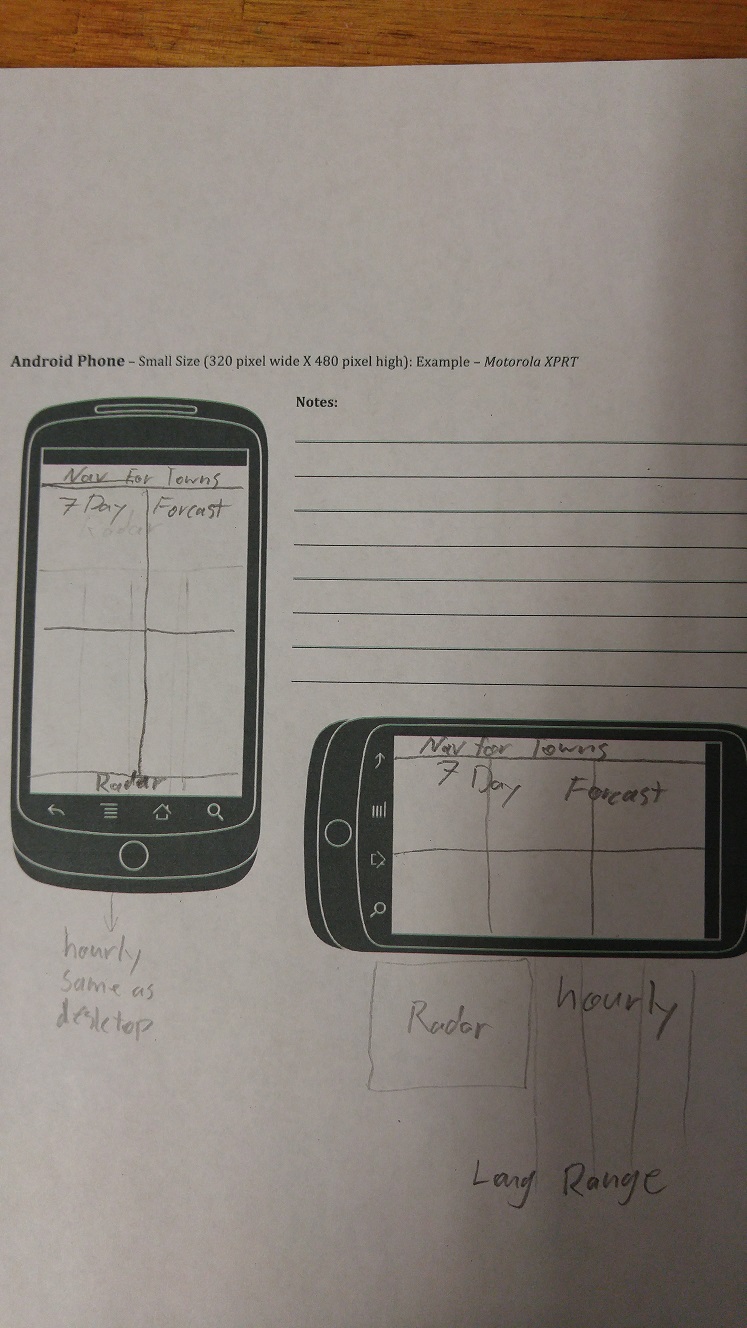 Android Phone – Small Size (320 pixel wide X 480 pixel high): Example – Motorola XPRT
Notes:
Nav For Towns
7 Day Forcast
Radar
Radar
hourly
same as
desktop
Nav for Towns
7 Day Forcast
Radar
hourly
Long Range